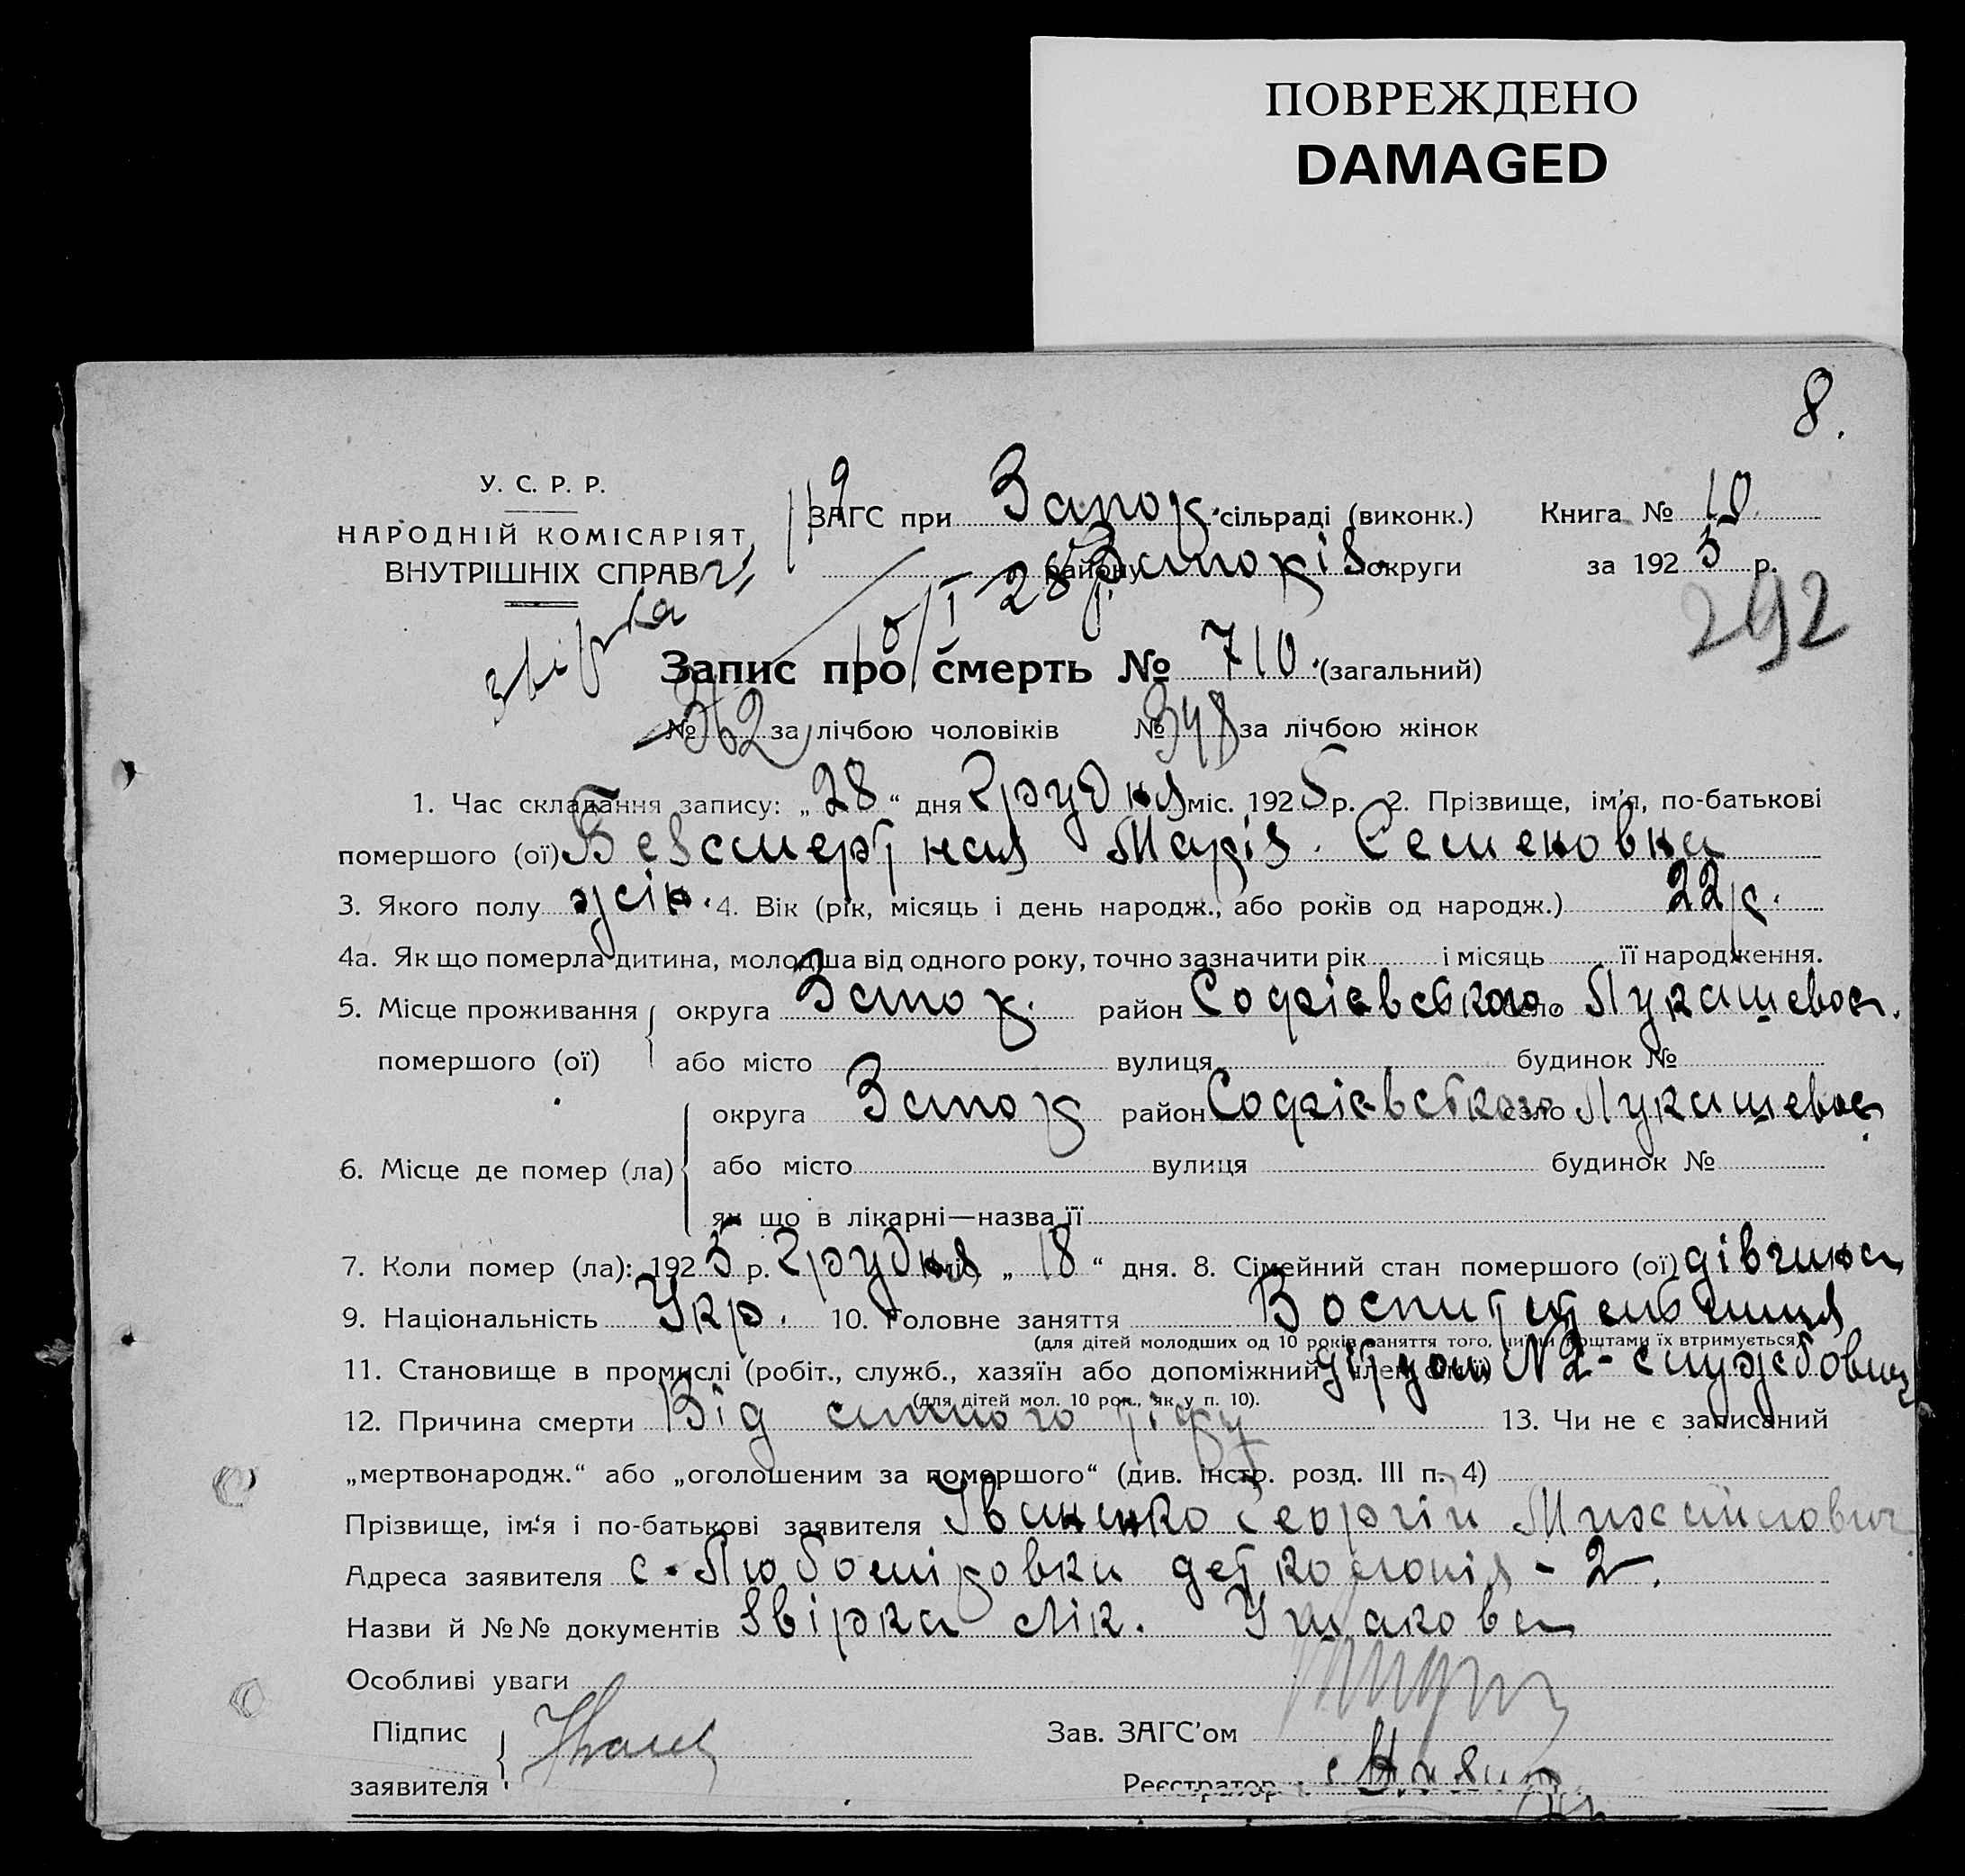 ПОВРЕЖДЕНО
DAMAGED
8.
У. С. Р. Р.
НАРОДНІЙ КОМІСАРІЯТ
ВНУТРІШНІХ СПРАВ
ЗАГС при Запор. сільраді (виконк.) Книга № 10
району Запоріз. округи за 1925 р.
292
звірка
10/I 28 р.
Запис про смерть № 710. (загальний)
№ 362 за лічбою чоловіків № 348 за лічбою жінок
1. Час складання запису: „28“ дня Грудня міс. 1925 р. 2. Прізвище, ім'я, по-батькові
помершого (ої) Безсмертная Марія Семеновна
3. Якого полу жін. 4. Вік (рік, місяць і день народж., або років од народж.) 22 р.
4а. Як що померла дитина, молодша від одного року, точно зазначити рік і місяць її народження.
5. Місце проживання округа Запор. район Софіевського село Лукашевое.
помершого (ої) або місто вулиця будинок №
округа Запор район Софіевського село Лукашевое
6. Місце де помер (ла) або місто вулиця будинок №
як що в лікарні—назва її
7. Коли помер (ла): 1925 р. Грудня міс. „18“ дня. 8. Сімейний стан помершого (ої) дівчина
9. Національність Укр. 10. Головне заняття Воспитательниця
(для дітей молодших од 10 років заняття того, чиїми коштами їх втримується)
11. Становище в промислі (робіт., служб., хазяїн або допоміжний член сім'ї) N2 - службовиц
(для дітей мол. 10 рок., як у п. 10).
12. Причина смерти Від сипного тіфу 13. Чи не є записаний
„мертвонародж.“ або „оголошеним за помершого“ (див. інстр. розд. III п. 4)
Прізвище, ім'я і по-батькові заявителя Іваненко Георгій Михайлович
Адреса заявителя с. Любоміровки детколонія - 2.
Назви й №№ документів Звірка лік. Ушакова
Особливі уваги
Підпис Зав. ЗАГС'ом
заявителя Реєстратор